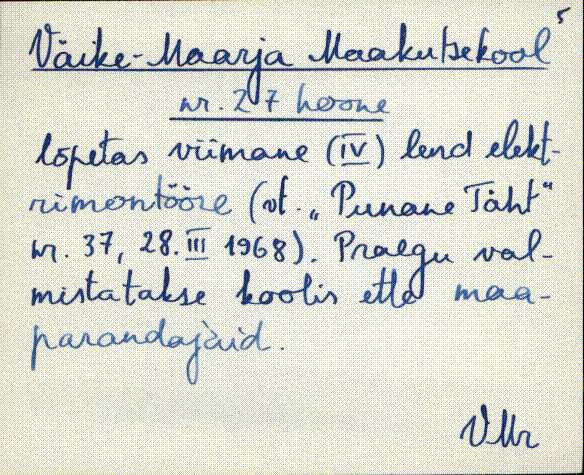 5
Väike-Maarja Maakutsekool
nr. 27 hoone
lõpetas viimane (IV) lend elekt-
rimontööre (vt. „Punane Täht"
nr. 37, 28. III 1968). Praegu val-
mistatakse koolis ette maa-
parandajaid.
VMr